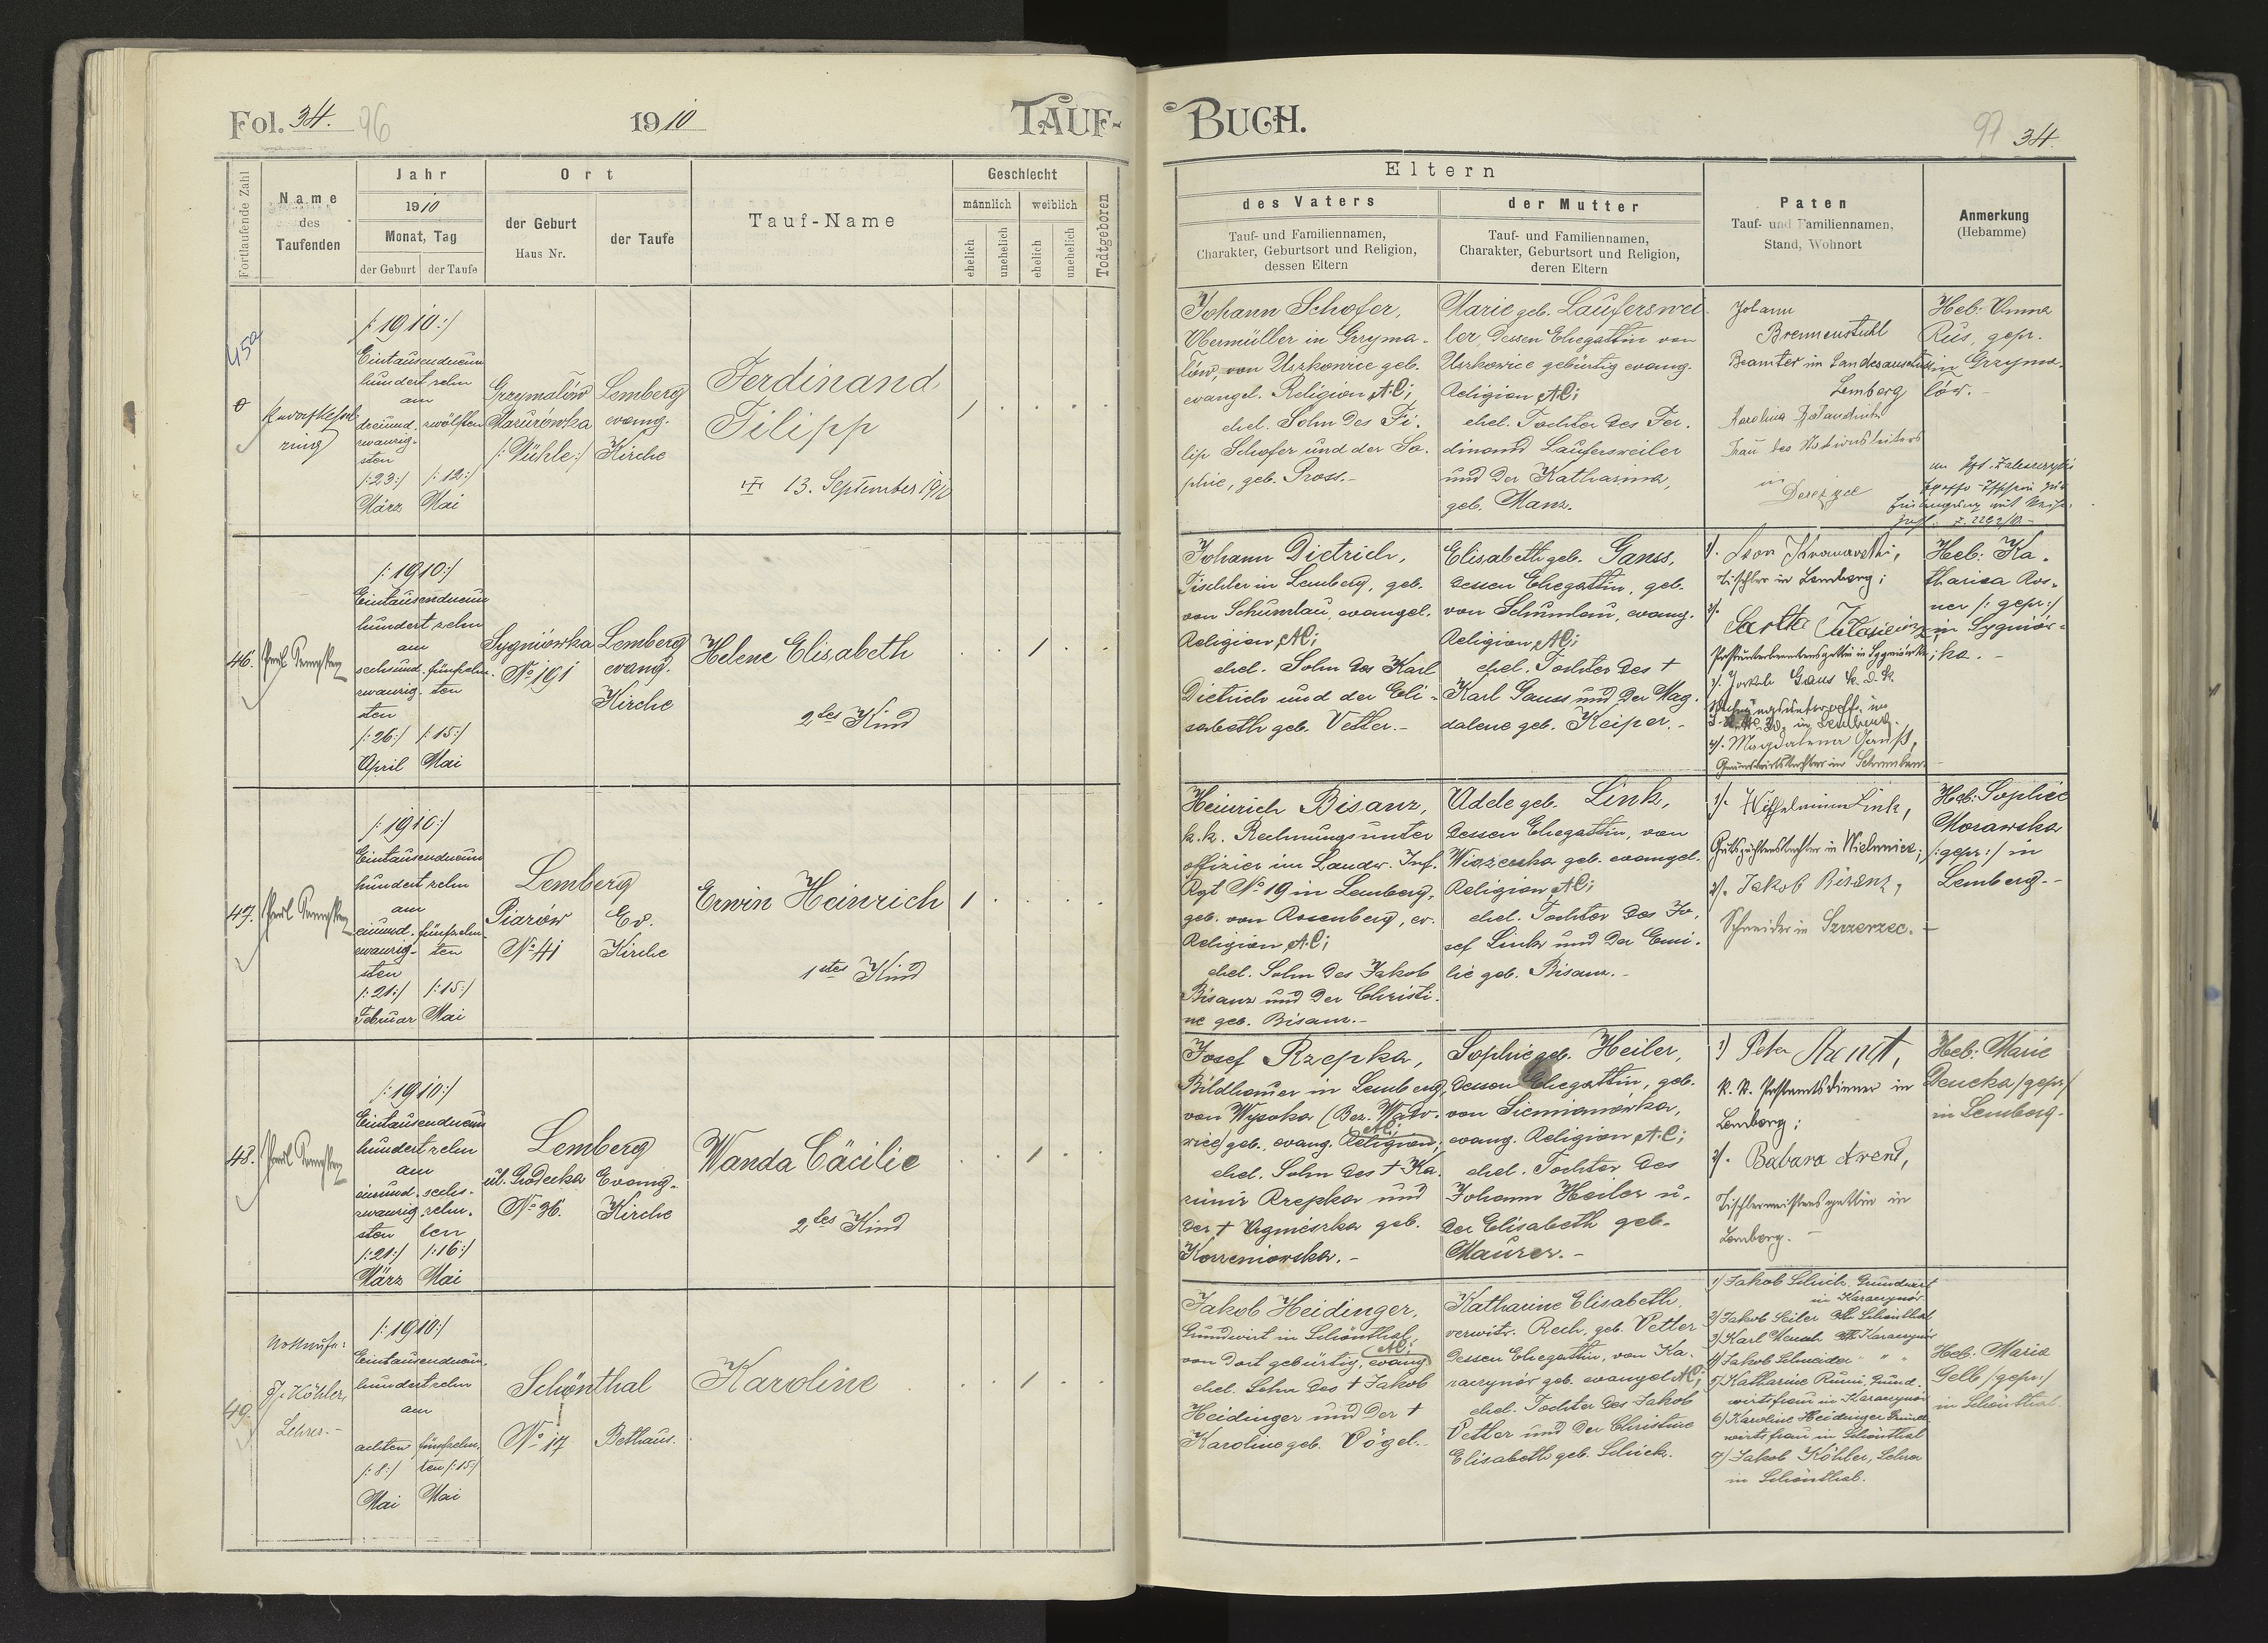 Fol. 34. 96
1910
TAUF-
BUCH.
97 34.
Fortlaufende Zahl
Name
des
Taufenden
Jahr
1910
Monat, Tag
der Geburt
der Taufe
Ort
der Geburt
Haus Nr.
der Taufe
Tauf-Name
Geschlecht
männlich
weiblich
ehelich
unehelich
ehelich
unehelich
Todtgeboren
Eltern
des Vaters
Tauf- und Familiennamen,
Charakter, Geburtsort und Religion,
dessen Eltern
der Mutter
Tauf- und Familiennamen,
Charakter, Geburtsort und Religion,
deren Eltern
Paten
Tauf- und Familiennamen,
Stand, Wohnort
Anmerkung
(Hebamme)
45a
/:1910:/
Eintausendneun
hundertzehn
am
dreiund-
zwanzig-
sten
/:23:/
März
zwölften
/:12:/
Mai
Grzymałów
Mazurówka
/:Mühle:/
Lemberg
evang.
Kirche
Ferdinand
Filipp
13. September 1910
Johann Schofer,
Obermüller in Grzyma-
łów, von Uszkowice geb.
evangel. Religion A.C;
ehel. Sohn des Fi-
lip Schofer und der So-
phie, geb. Pross.-
Marie geb. Lauferswei-
ler, dessen Ehegattin von
Uszkowice gebürtig evang.
Religion A.C;
ehel. Tochter des Fer-
dinand Laufersweiler
und der Katharina,
geb. Manz.
Johann
Bremenstuhl
Beamter im Landesausschuss
Lemberg
Karolina
Frau des Stationsleiters
in
Heb: Anna
Rus, gepr.
in Grzyma-
łów.-
46.
/:1910:/
Eintausendneun
hundertzehn
am
sechsund-
zwanzig-
sten
/:26:/
April
fünfzehn-
ten
/:15:/
Mai
Sygniówka
No 191
Lemberg
evang.
Kirche
Helene Elisabeth
2tes Kind
Johann Dietrich,
Tischler in Lemberg, geb.
von Schumlau, evangel.
Religion A.C;
ehel. Sohn des Karl
Dietrich und der Eli-
sabeth geb. Vetter.-
Elisabeth geb. Ganss,
dessen Ehegattin, geb.
von Schumlau, evang.
Religion A.C;
ehel. Tochter des †
Karl Ganss und der Mag-
dalene geb. Keiper.-
1/. Leon
Tischler in Lemberg;
2/.
in Sygniówka;
3/. Gans k. u. k.
in Lemberg.
4/. Magdalena Ganß,
Heb: Ka-
tharina Ros-
ner /: gepr:/
in Sygniów-
ka.-
47.
/:1910:/
Eintausendneun
hundertzehn
am
einund-
zwanzig-
sten
/:21:/
Februar
fünfzehn-
ten
/:15:/
Mai
Lemberg
Piarów
No 41
Ev.
Kirche
Erwin Heinrich
1stes Kind
Heinrich Bisanz,
k.k. Rechnungsunter
offizier im Landw. Inf.
Rgt No 19 in Lemberg,
geb. von Rosenberg, ev.
Religion A.C;
ehel. Sohn des Jakob
Bisanz und der Christi-
ne geb. Bisanz.-
Adele geb. Link,
dessen Ehegattin, von
geb. evangel.
Religion A.C;
ehel. Tochter des Jo-
sef Link und der Emi-
lie geb. Bisanz.-
1/. Wilhelmine Link,
Gutspächterstochter in
2/. Jakob Bisanz,
Schneider in Szczerzec.-
Heb: Sophie
Morawska
/:gepr:/ in
Lemberg.-
48.
/:1910:/
Eintausendneun
hundertzehn
am
einund-
zwanzig-
sten
/:21:/
März
sechs-
zehn-
ten
/:16:/
Mai
Lemberg
ul. Gródecka
No 36.
Evang.
Kirche
Wanda Cäcilie
2tes Kind
Josef Rzepka,
Bildhauer in Lemberg,
von Wysoka (Bez. Wado-
wice) geb., evang. Religion A.C;
ehel. Sohn des † Ka-
zimir Rzepka und
der † Agnieszka geb.
Korzeniowska.-
Sophie geb. Heiler,
dessen Ehegattin, geb.
von Siemianówka,
evang. Religion A.C;
ehel. Tochter des
Johann Heiler u.
der Elisabeth geb.
Maurer.-
1/ Peter Arendt,
k. k. Postamtsdiener in
Lemberg;
2/. Babara Arend,
Tischlermeistersgattin in
Lemberg.-
Heb: Marie
Deucka /gepr/
in Lemberg.
49.
J. Köhler,
Lehrer.-
/:1910:/
Eintausendneun-
hundertzehn
am
achten
/:8:/
Mai
fünfzehn-
ten /:15:/
Mai
Schönthal
No 17
Bethaus.
Karoline
Jakob Heidinger,
Grundwirt in Schönthal,
von dort gebürtig, evang A.C;
ehel. Sohn des † Jakob
Heidinger und der †
Karoline geb. Vögel.-
Katharine Elisabeth
verwitw. Rech, geb. Vetter
dessen Ehegattin, von Ka-
raczynów geb. evangel A.C;
ehel. Tochter des Jakob
Vetter und der Christine
Elisabeth geb. Schick.
1/ Jakob Schick, Grundwirt
in Karaczynów
2/ Jakob Seiler Schönthal
3/ Karl Karaczynów
4/ Jakob Schneider " "
5/ Katharine Grund-
wirtsfrau in Karaczynów
6/ Karoline Heidinger Grund-
wirtsfrau in Schönthal
7/ Jakob Köhler, Lehrer
in Schönthal.
Heb: Maria
Gelb /:gepr:/
in Schönthal.